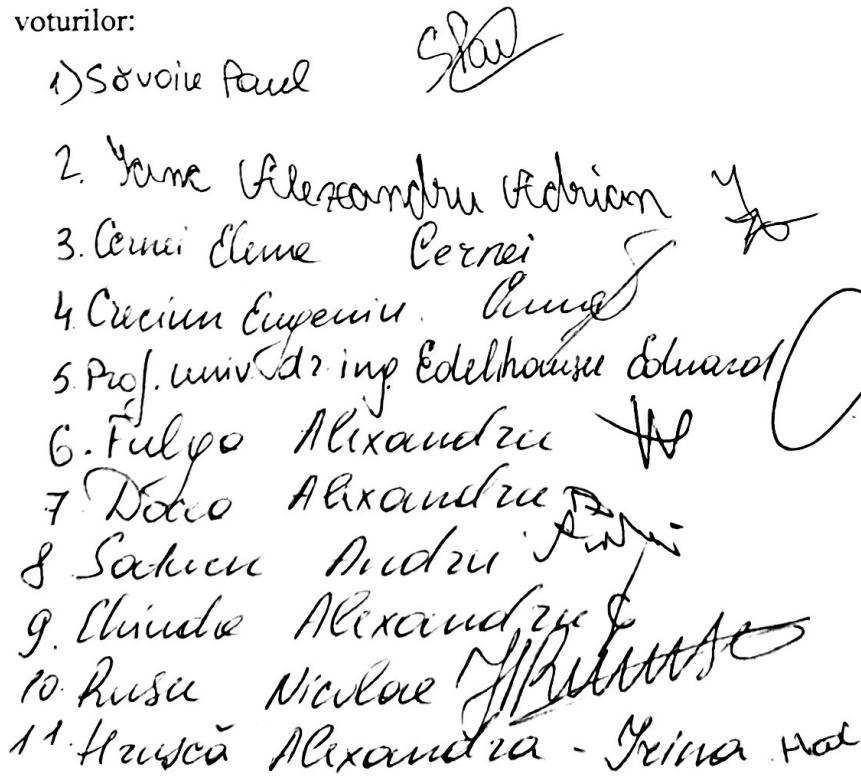 voturilor:
1) Săvoiu Paul
2. Iane Alexandru Adrian
3. Cernei Elena Cernei
4 Creciun Eugeniu.
5. Prof. univ. dr. ing Edelhauser Eduard
6. Fulga Alexandru
7 Alexandru
8 Andrei Andrei
9. Chindea Alexandru
10. Rusu Nicolae
11. Hrușcă Alexandra - Irina